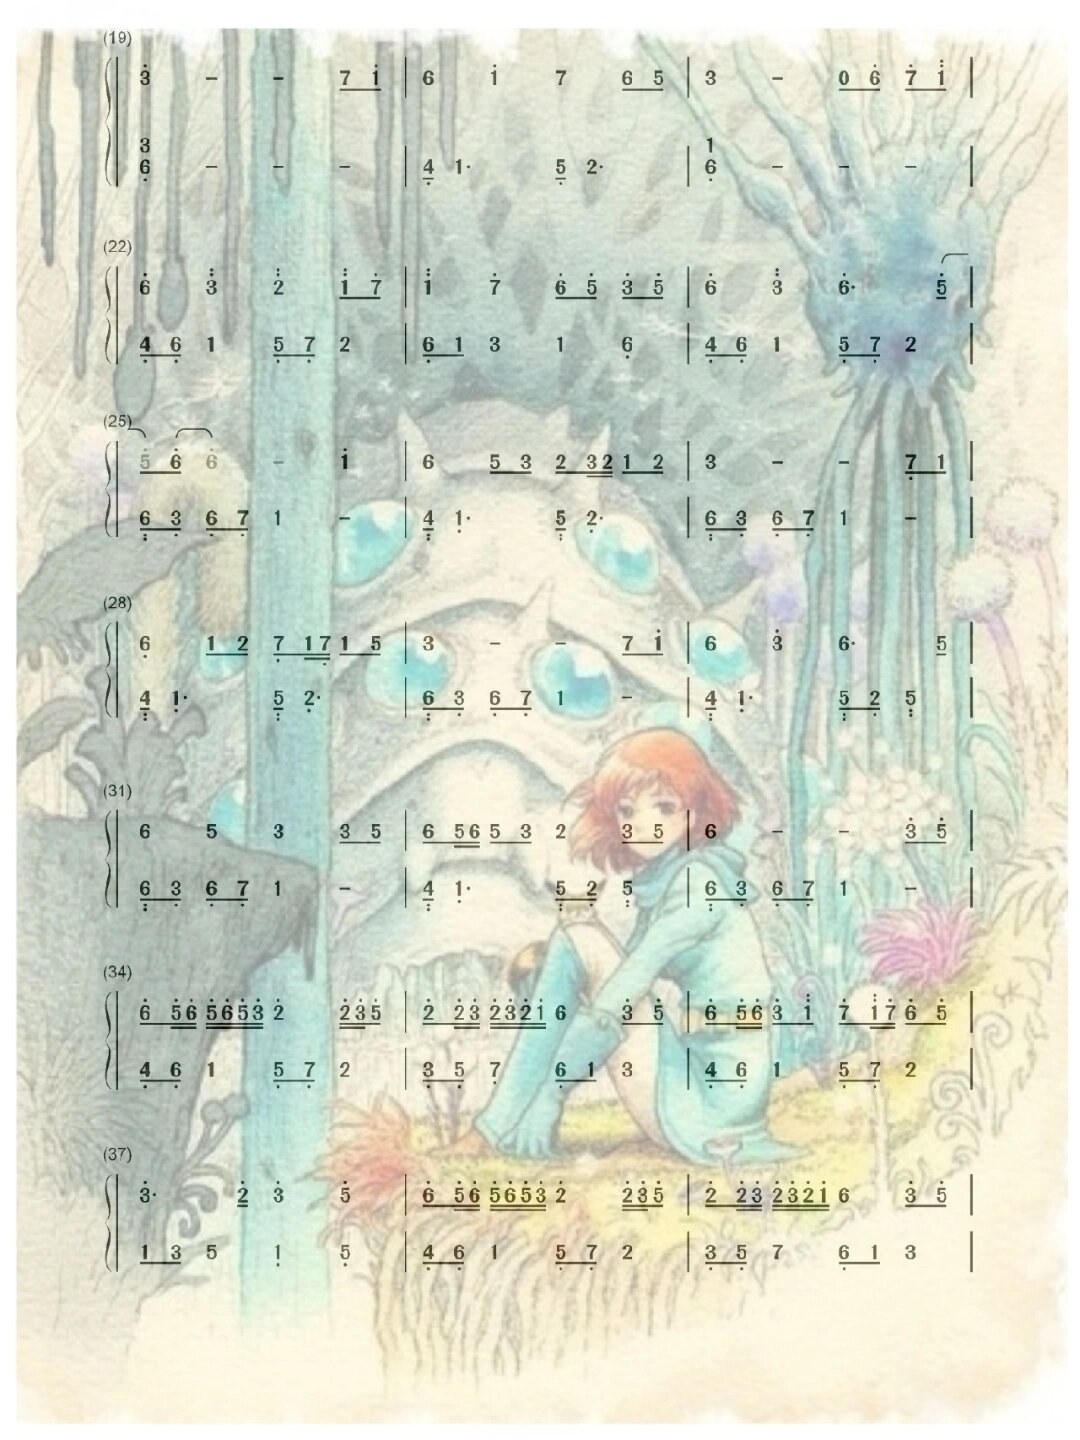 (19)
3 - - 7 1 | 6 1 7 6 5 | 3 - 0 6 7 1 |
3
6 - - - | 4 1· 5 2· | 1
6 - - - |
(22)
6 3 2 1 7 | 1 7 6 5 3 5 | 6 3 6· 5 |
4 6 1 5 7 2 | 6 1 3 1 6 | 4 6 1 5 7 2 |
(25)
5 6 6 - 1 | 6 5 3 2 3 2 1 2 | 3 - - 7 1 |
6 3 6 7 1 - | 4 1· 5 2· | 6 3 6 7 1 - |
(28)
6 1 2 7 1 7 1 5 | 3 - - 7 1 | 6 3 6· 5 |
4 1· 5 2· | 6 3 6 7 1 - | 4 1· 5 2 5 |
(31)
6 5 3 3 5 | 6 5 6 5 3 2 3 5 | 6 - - 3 5 |
6 3 6 7 1 - | 4 1· 5 2 5 | 6 3 6 7 1 - |
(34)
6 5 6 5 6 5 3 2 2 3 5 | 2 2 3 2 3 2 1 6 3 5 | 6 5 6 3 1 7 1 7 6 5 |
4 6 1 5 7 2 | 3 5 7 6 1 3 | 4 6 1 5 7 2 |
(37)
3· 2 3 5 | 6 5 6 5 6 5 3 2 2 3 5 | 2 2 3 2 3 2 1 6 3 5 |
1 3 5 1 5 | 4 6 1 5 7 2 | 3 5 7 6 1 3 |